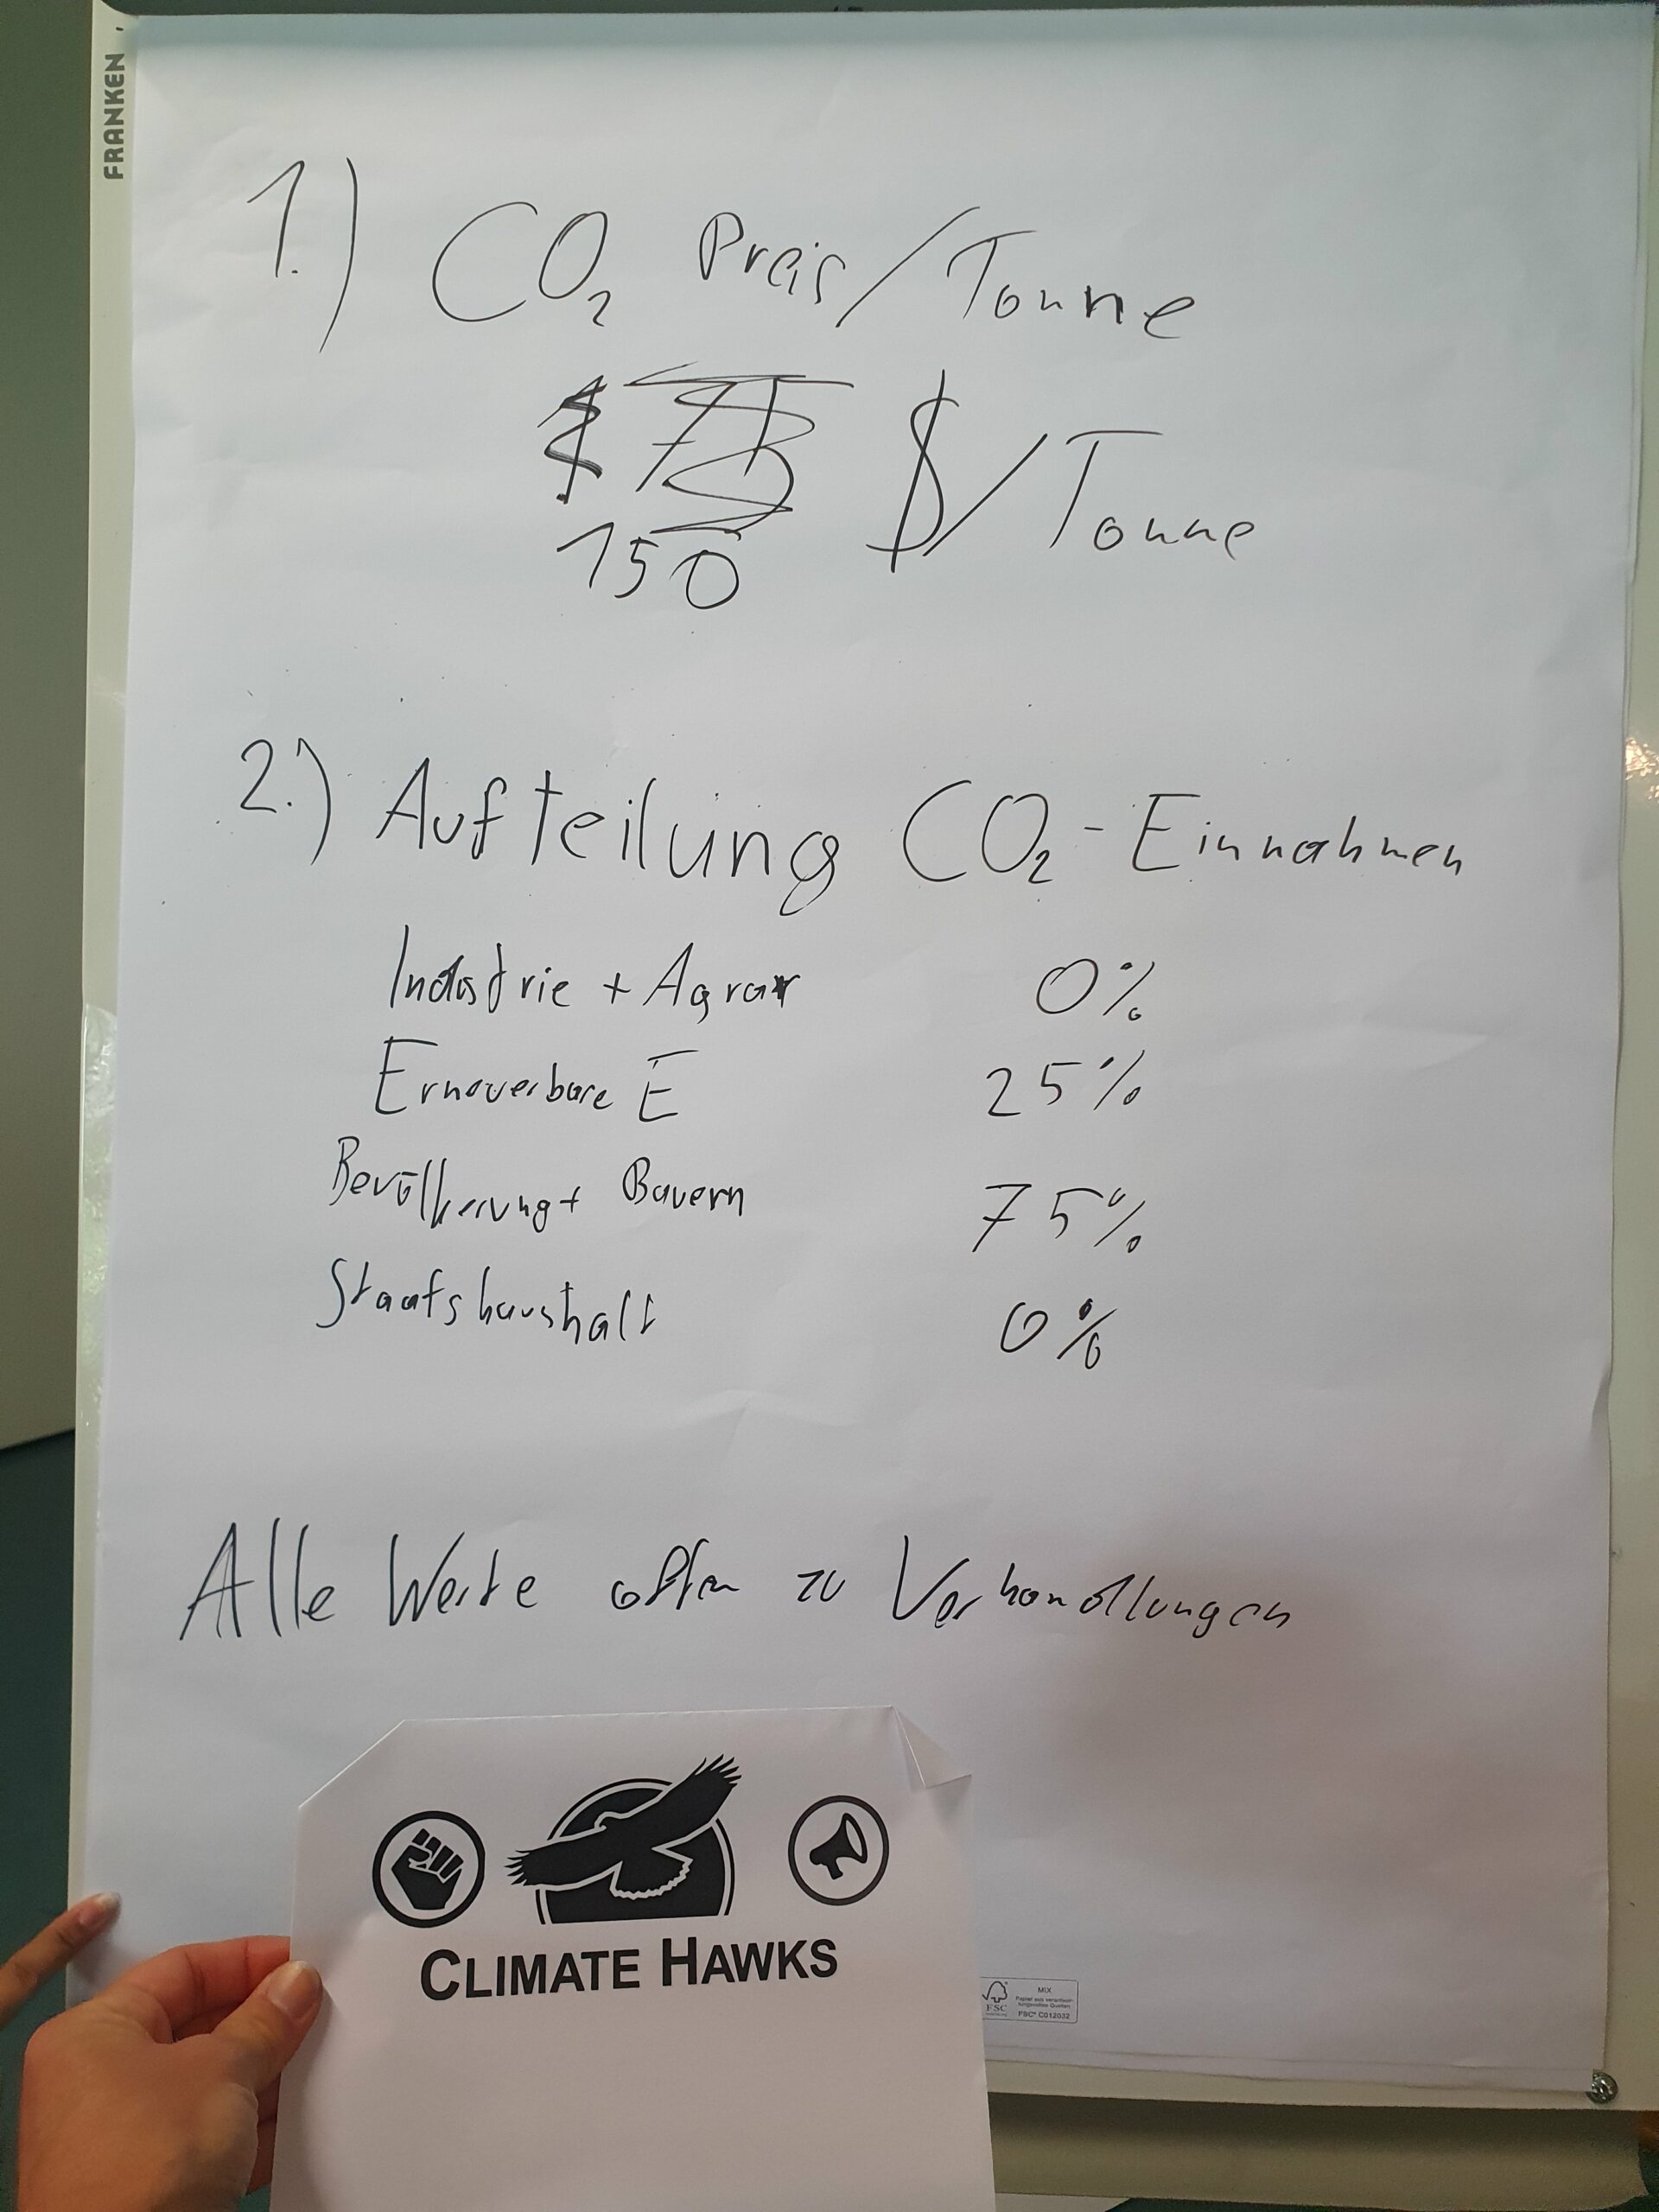 FRANKEN
1.) CO₂ Preis/Tonne
150 $/Tonne
2.) Aufteilung CO₂-Einnahmen
Industrie + Agrar 0%
Erneuerbare E 25%
Bevölkerung + Bauern 75%
Staatshaushalt 0%
Alle Werte offen zu Verhandlungen
CLIMATE HAWKS
FSC
MIX
Papier aus verantwor-
tungsvollen Quellen
FSC® C012032